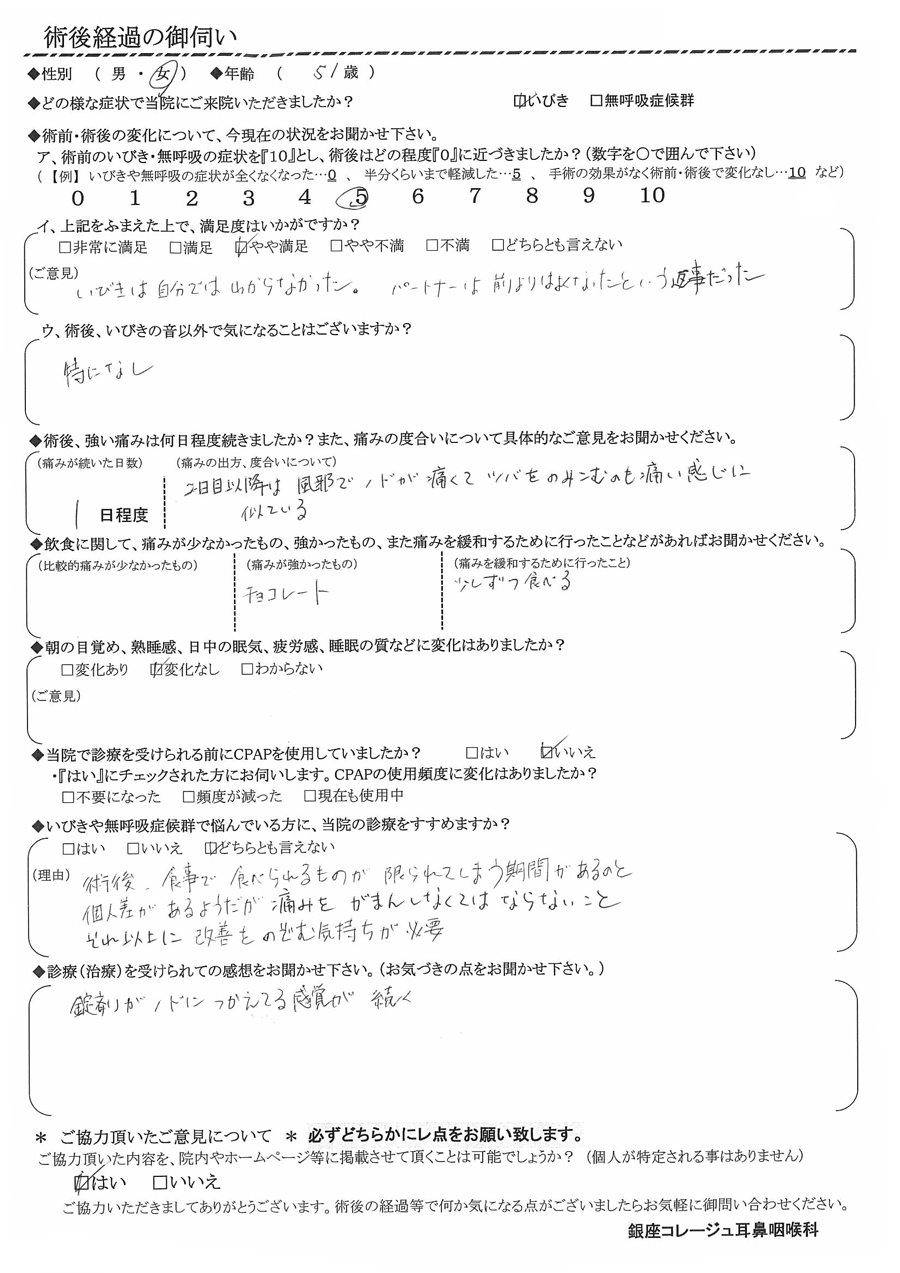 術後経過の御伺い
◆性別 ( 男 ・ 女 ) ◆年齢 ( 51 歳 )
◆どの様な症状で当院にご来院いただきましたか? ☑いびき □無呼吸症候群
◆術前・術後の変化について、今現在の状況をお聞かせ下さい。
ア、術前のいびき・無呼吸の症状を『10』とし、術後はどの程度『0』に近づきましたか?(数字を○で囲んで下さい)
(【例】 いびきや無呼吸の症状が全くなくなった…0 、 半分くらいまで軽減した…5 、 手術の効果がなく術前・術後で変化なし…10 など)
0 1 2 3 4 5 6 7 8 9 10
イ、上記をふまえた上で、満足度はいかがですか?
□非常に満足 □満足 ☑やや満足 □やや不満 □不満 □どちらとも言えない
(ご意見)
いびきは自分ではわからなかった。 パートナーは前よりはよくなったという返事だった
ウ、術後、いびきの音以外で気になることはございますか?
特になし
◆術後、強い痛みは何日程度続きましたか?また、痛みの度合いについて具体的なご意見をお聞かせください。
(痛みが続いた日数) (痛みの出方、度合いについて)
2日目以降は 風邪でノドが痛くてツバをのみこむのも痛い感じに
1 日程度 似ている
◆飲食に関して、痛みが少なかったもの、強かったもの、また痛みを緩和するために行ったことなどがあればお聞かせください。
(比較的痛みが少なかったもの) (痛みが強かったもの) (痛みを緩和するために行ったこと)
チョコレート 少しずつ食べる
◆朝の目覚め、熟睡感、日中の眠気、疲労感、睡眠の質などに変化はありましたか?
□変化あり ☑変化なし □わからない
(ご意見)
◆当院で診療を受けられる前にCPAPを使用していましたか? □はい ☑いいえ
・『はい』にチェックされた方にお伺いします。CPAPの使用頻度に変化はありましたか?
□不要になった □頻度が減った □現在も使用中
◆いびきや無呼吸症候群で悩んでいる方に、当院の診療をすすめますか?
□はい □いいえ ☑どちらとも言えない
(理由) 術後、食事で食べられるものが限られてしまう期間があるのと
個人差があるようだが痛みをがまんしなくてはならないこと
それ以上に改善をのぞむ気持ちが必要
◆診療(治療)を受けられての感想をお聞かせ下さい。(お気づきの点をお聞かせ下さい。)
錠剤がノドにつかえてる感覚が続く
＊ ご協力頂いたご意見について ＊ 必ずどちらかにレ点をお願い致します。
ご協力頂いた内容を、院内やホームページ等に掲載させて頂くことは可能でしょうか? (個人が特定される事はありません)
☑はい □いいえ
ご協力いただきましてありがとうございます。術後の経過等で何か気になる点がございましたらお気軽に御問い合わせください。
銀座コレージュ耳鼻咽喉科